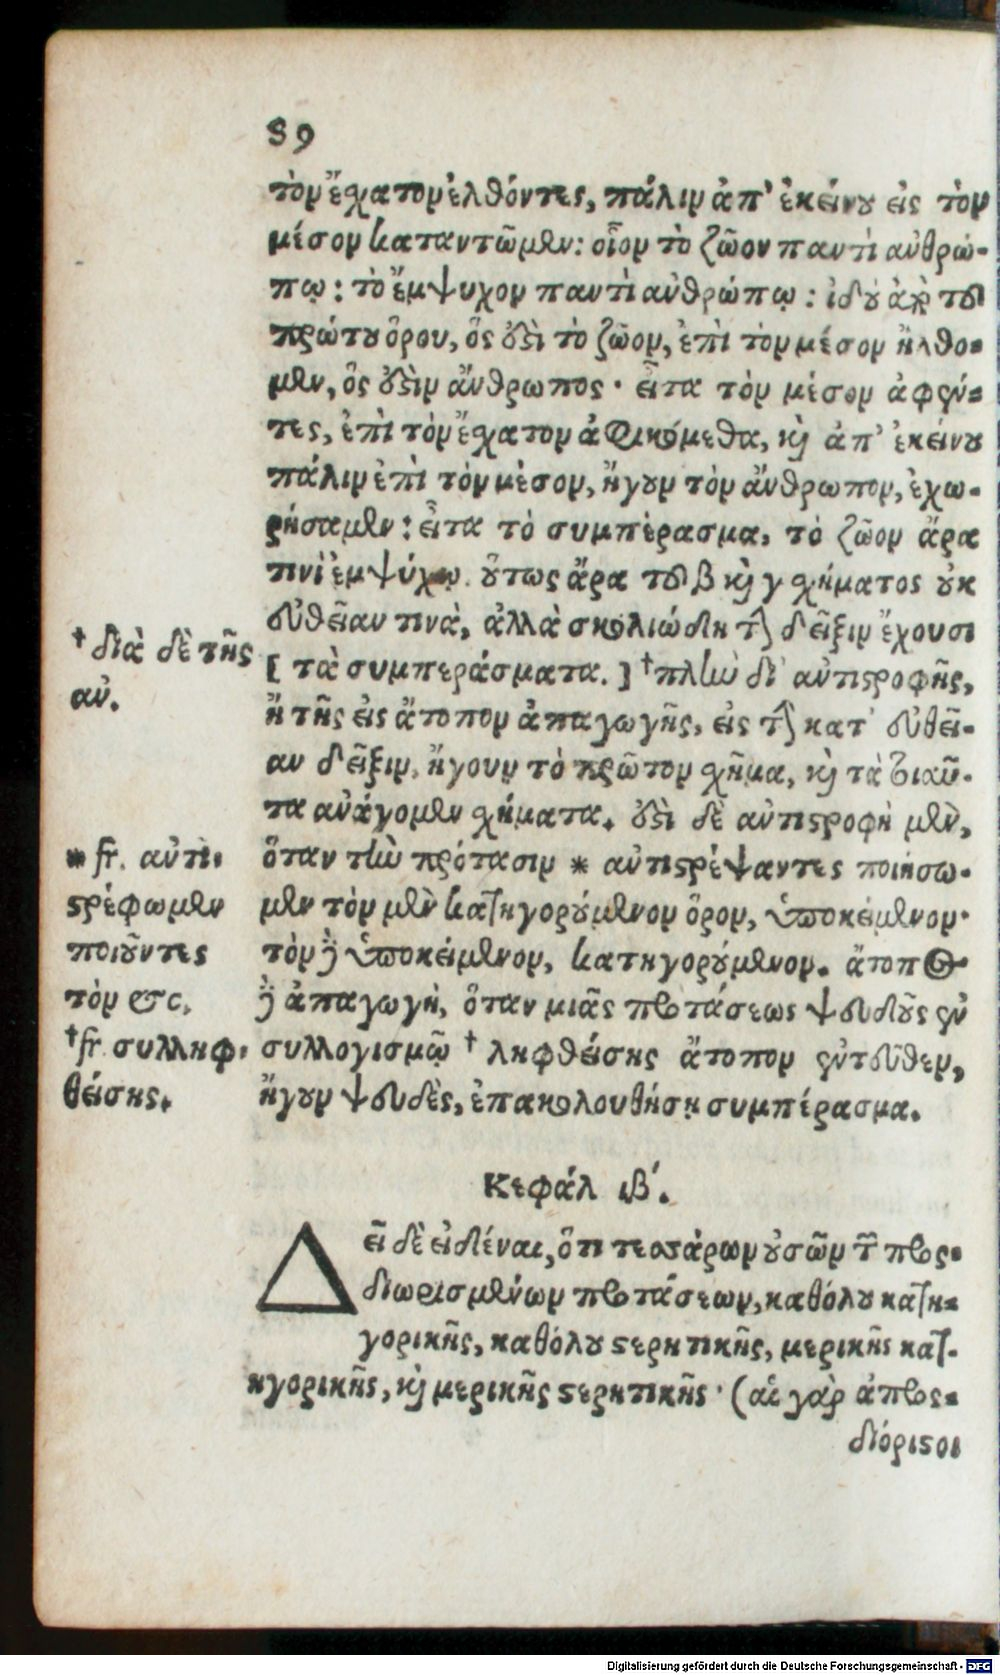 89
τὸν ἔχατον ἐλθόντες, πάλιν ἀπ' ἐκείνȣ εἰς τὸν
μέσον καταντῶμεν: οἷον τὸ ζῶον παντὶ ἀνθρώ-
πῳ: τὸ ἔμψυχον παντὶ ἀνθρώπῳ: ἰδȣ̀ ἀπὸ τοῦ
πρώτȣ ὅρου, ὅς ἐϛὶ τὸ ζῶον, ἐπὶ τὸν μέσον ἤλθο-
μεν, ὅς ἐϛὶν ἄνθρωπος· εἶτα τὸν μέσον ἀφέν-
τες, ἐπὶ τὸν ἔχατον ἀφικόμεθα, κỳ ἀπ' ἐκείνȣ
πάλιν ἐπὶ τὸν μέσον, ἤγουν τὸν ἄνθρωπον, ἐχω-
ρήσαμεν: εἶτα τὸ συμπέρασμα, τὸ ζῶον ἄρα
τινὶ ἐμψύχῳ. ȣ̓́τως ἄρα τοῦ β κỳ γ χήματος ȣ̓κ
εὐθεῖαν τινὰ, ἀλλὰ σκολιώδη τὴν δεῖξιν ἔχουσι
[ τὰ συμπεράσματα. ] † πλὴν δι' ἀντιϛροφῆς,
ἢ τῆς εἰς ἄτοπον ἀπαγωγῆς, εἰς τὴν κατ' εὐθεῖ-
αν δεῖξιν, ἤγουν τὸ πρῶτον χῆμα, κỳ τὰ τοιαῦ-
τα ἀνάγομεν χήματα. ἐϛὶ δὲ ἀντιϛροφὴ μὲν,
ὅταν τὴν πρότασιν * ἀντιϛρέψαντες ποιήσω-
μεν τὸν μὲν κατηγορȣ́μενον ὅρον, ὑποκείμενον·
τὸν δὲ ὑποκείμενον, κατηγορȣ́μενον. ἄτοπος
δὲ ἀπαγωγὴ, ὅταν μιᾶς προτάσεως ψευδοῦς ἐν
συλλογισμῷ † ληφθείσης ἄτοπον ἐντεῦθεν,
ἤγουν ψευδὲς, ἐπακολουθήσῃ συμπέρασμα.
† διὰ δὲ τῆς
ἀν.
* fr. ἀντι-
ϛρέφωμεν
ποιοῦντες
τὸν &c.
† fr. συλληφ-
θείσης.
Κεφάλ ιβ΄.
Δεῖ δὲ εἰδέναι, ὅτι τεσσάρων ȣ̓σῶν τῶν προς-
διωρισμένων προτάσεων, καθόλȣ κατη-
γορικῆς, καθόλȣ ϛερητικῆς, μερικῆς κατ-
ηγορικῆς, κỳ μερικῆς ϛερητικῆς· (αἱ γὰρ ἀπρος-
διόριϛοι
Digitalisierung gefördert durch die Deutsche Forschungsgemeinschaft - DFG